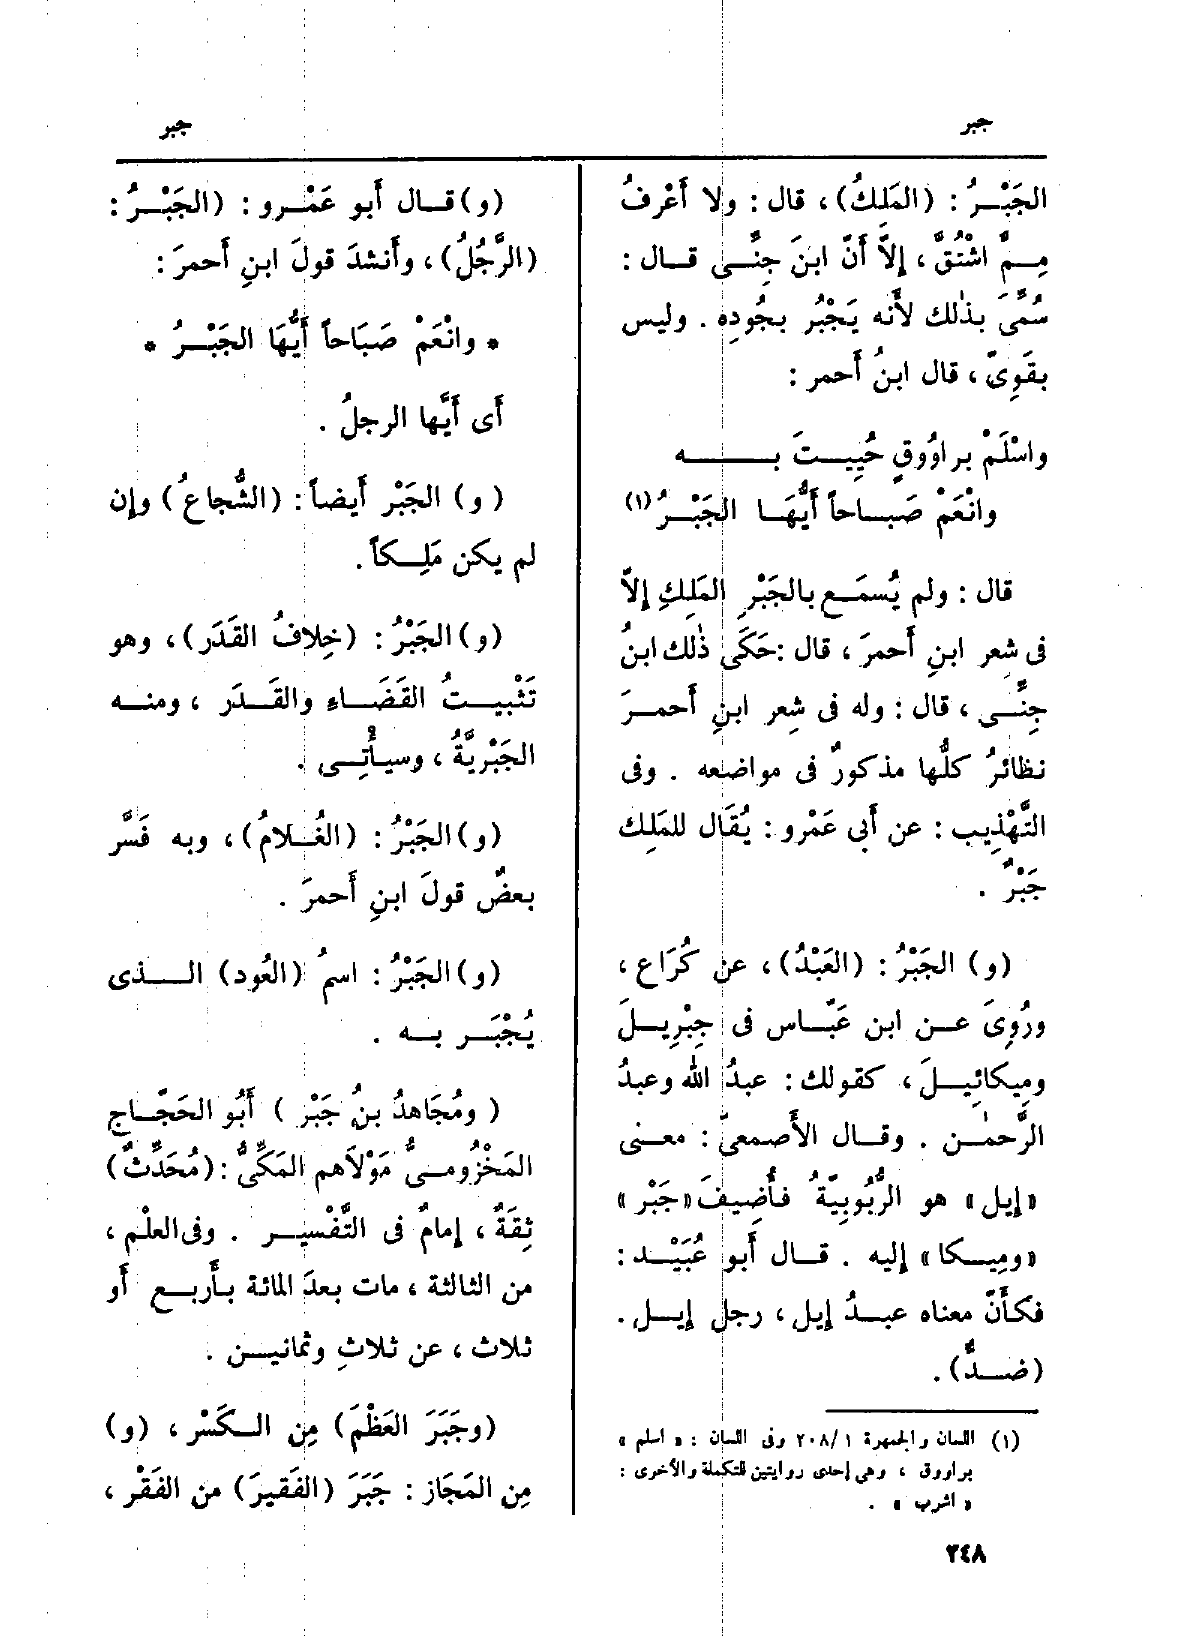 جبر
جبر
الجَبْــرُ : (المَلِكُ) ، قال : ولا أَعْرفُ
مِــمَّ اشْتُقَّ ، إِلاَّ أَنَّ ابنَ جِنِّــى قــال :
سُمِّىَ بذٰلك لأَنه يَجْبُر بجُودِه . وليس
بقَوِىّ ، قال ابنُ أَحمر :
واسْلَمْ براوُوقٍ حُيِيــتَ بــــه
وانْعَمْ صَبــاحاً أَيُّهَــا الجَبْــرُ (١)
قال : ولم يُسمَــع بالجَبْرِ المَلِكِ إِلاَّ
فى شعر ابنِ أَحمرَ ، قال :حَكَى ذٰلك ابنُ
جِنِّــى ، قال : وله فى شِعر ابنِ أَحمــرَ
نظائرُ كلُّها مذكورٌ فى مواضعه . وفى
التَّهْذِيب : عن أَبى عَمْرو : يُقَال للمَلِك
جَبْرٌ .
(و) الجَبْرُ : (العَبْدُ) ، عن كُرَاع ،
ورُوِىَ عــن ابن عَبّاس فى جِبْرِيــلَ
ومِيكائِيــلَ ، كقولك : عبدُ الله وعبدُ
الرَّحمٰــن . وقــال الأَصمعىّ : معنــى
«إِيل» هو الرُّبُوبِيَّةُ فأُضِيفَ «جَبْر»
«ومِيــكا» إليه . قــال أَبو عُبَيْــد :
فكأَنّ معناه عبــدُ إِيل ، رجل إِيــل .
(ضــدٌّ) .
(١) اللسان والجمهرة ٢٠٨/١ وفى اللسان : « اسلم »
براووق ، وهى إحدى روايتين للتكملة والأخرى :
« اشرب » .
(و) قــال أَبو عَمْــرو : (الجَبْــرُ :
(الرَّجُلُ) ، وأَنشدَ قولَ ابنِ أَحمرَ :
* وانْعَمْ صَبَاحاً أَيُّهَا الجَبْــرُ *
أَى أَيُّها الرجلُ .
(و) الجَبْر أَيضاً : (الشُّجاعُ) وإن
لم يكن مَلِــكاً .
(و) الجَبْرُ : (خِلافُ القَدَر) ، وهو
تَثْبيــتُ القَضَــاءِ والقَــدَر ، ومنــه
الجَبْرِيَّةُ ، وسيــأْتِــى .
(و) الجَبْرُ : (الغُــلامُ) ، وبه فَسَّر
بعضٌ قولَ ابنِ أَحمرَ .
(و) الجَبْرُ : اسمُ (العُود) الــذى
يُجْبَــر بــه .
(ومُجَاهدُ بنُ جَبْر ) أَبُو الحَجّــاج
المَخْزُومــىُّ مَوْلاَهم المَكِّىُّ : (مُحَدِّثٌ)
ثِقَةٌ ، إِمامٌ فى التَّفْسِيــر . وفى العلْم ،
من الثالثة ، مات بعدَ المائة بأَربــع أَو
ثلاث ، عن ثلاثِ وثمانيــن .
(وجَبَرَ العَظْمَ) مِن الــكَسْر ، (و)
مِن المَجَاز : جَبَرَ (الفَقيرَ) من الفَقْر ،
٣٤٨